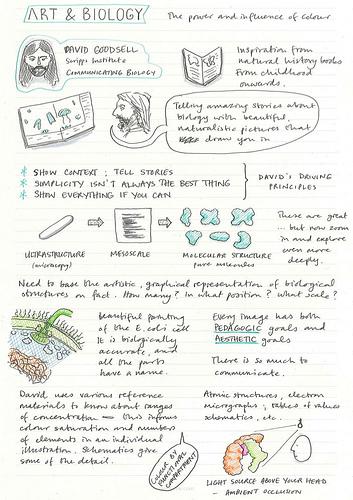 ART & BIOLOGY
The power and influence of colour
DAVID GOODSELL
Scripps Institute
COMMUNICATING BIOLOGY
Inspiration from
natural history books
from childhood
onwards.
Telling amazing stories about
biology with beautiful,
naturalistic pictures that
draw you in
* SHOW CONTEXT; TELL STORIES
* SIMPLICITY ISN'T ALWAYS THE BEST THING
* SHOW EVERYTHING IF YOU CAN
DAVID'S DRIVING
PRINCIPLES
ULTRASTRUCTURE
(microscopy)
MESOSCALE
MOLECULAR STRUCTURE
pure molecules
These are great
... but now zoom
in and explore
even more
deeply.
Need to base the artistic, graphical representation of biological
structures on fact. How many? In what position? What scale?
Beautiful painting
of the E. coli cell
It is biologically
accurate, and
all the parts
have a name.
Every image has both
PEDAGOGIC goals and
AESTHETIC goals
There is so much to
communicate.
David uses various reference
materials to know about ranges
of concentration — this informs
colour saturation and numbers
of elements in an individual
illustration. Schematics give
some of the detail.
COLOUR BY
FUNCTIONAL
COMPARTMENT
Atomic structures, electron
micrographs, tables of values
schematics, etc.
LIGHT SOURCE ABOVE YOUR HEAD
- AMBIENT OCCLUSION